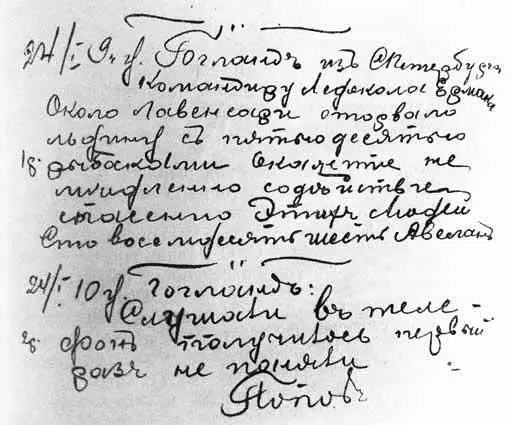 24/I 9 ч. Гогландъ из С Петербурга
Командиру Ледокола Ермакъ
Около Лавенсари оторвало
льдину съ пятьюдесятью
рыбаками Окажите не
медленно содѣйствие
спасению Этихъ людей
Сто восемьдесятъ шесть Авеланъ
24/I 10 ч. Гогландъ:
Слушали въ теле-
фонъ получилось первый
разъ не поняли
Поповъ